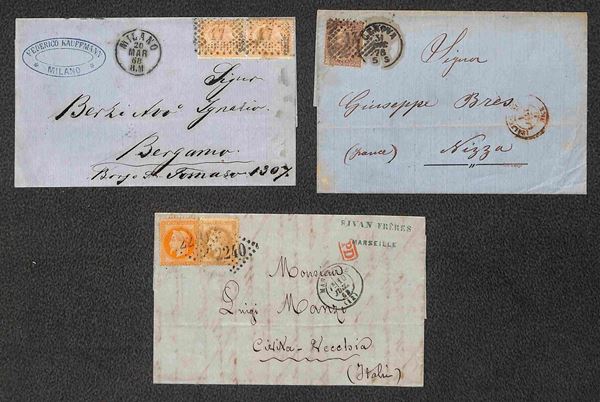 FEDERICO KAUFFMANN
MILANO
MILANO
20
MAR
68
8M
Signor
Ignazio
Bergamo
Borgo S. Tomaso 1307.
GENOVA
76
5 S
Signor
Giuseppe Bres
(france) Nizza
SIVAN FRÈRES
MARSEILLE
PD
2240
Monsieur
Luigi Manzi
Civita-Vecchia
(Italie)